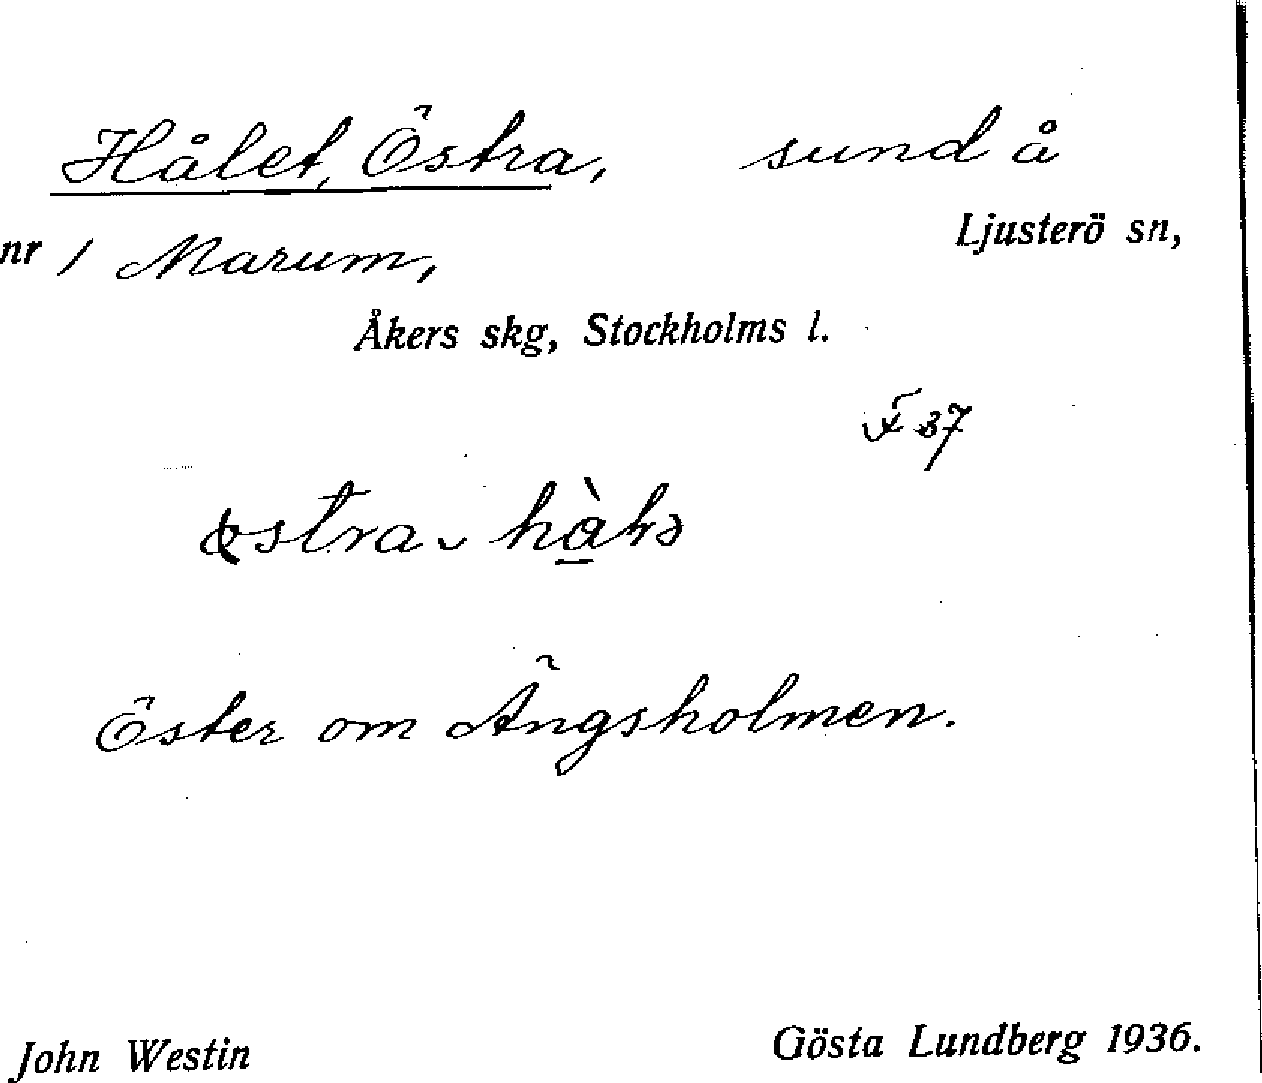 Hålet, Östra, sund å
nr 1 Marum, Ljusterö sn,
Åkers skg, Stockholms l.
37
Öster om Ängsholmen.
John Westin Gösta Lundberg 1936.